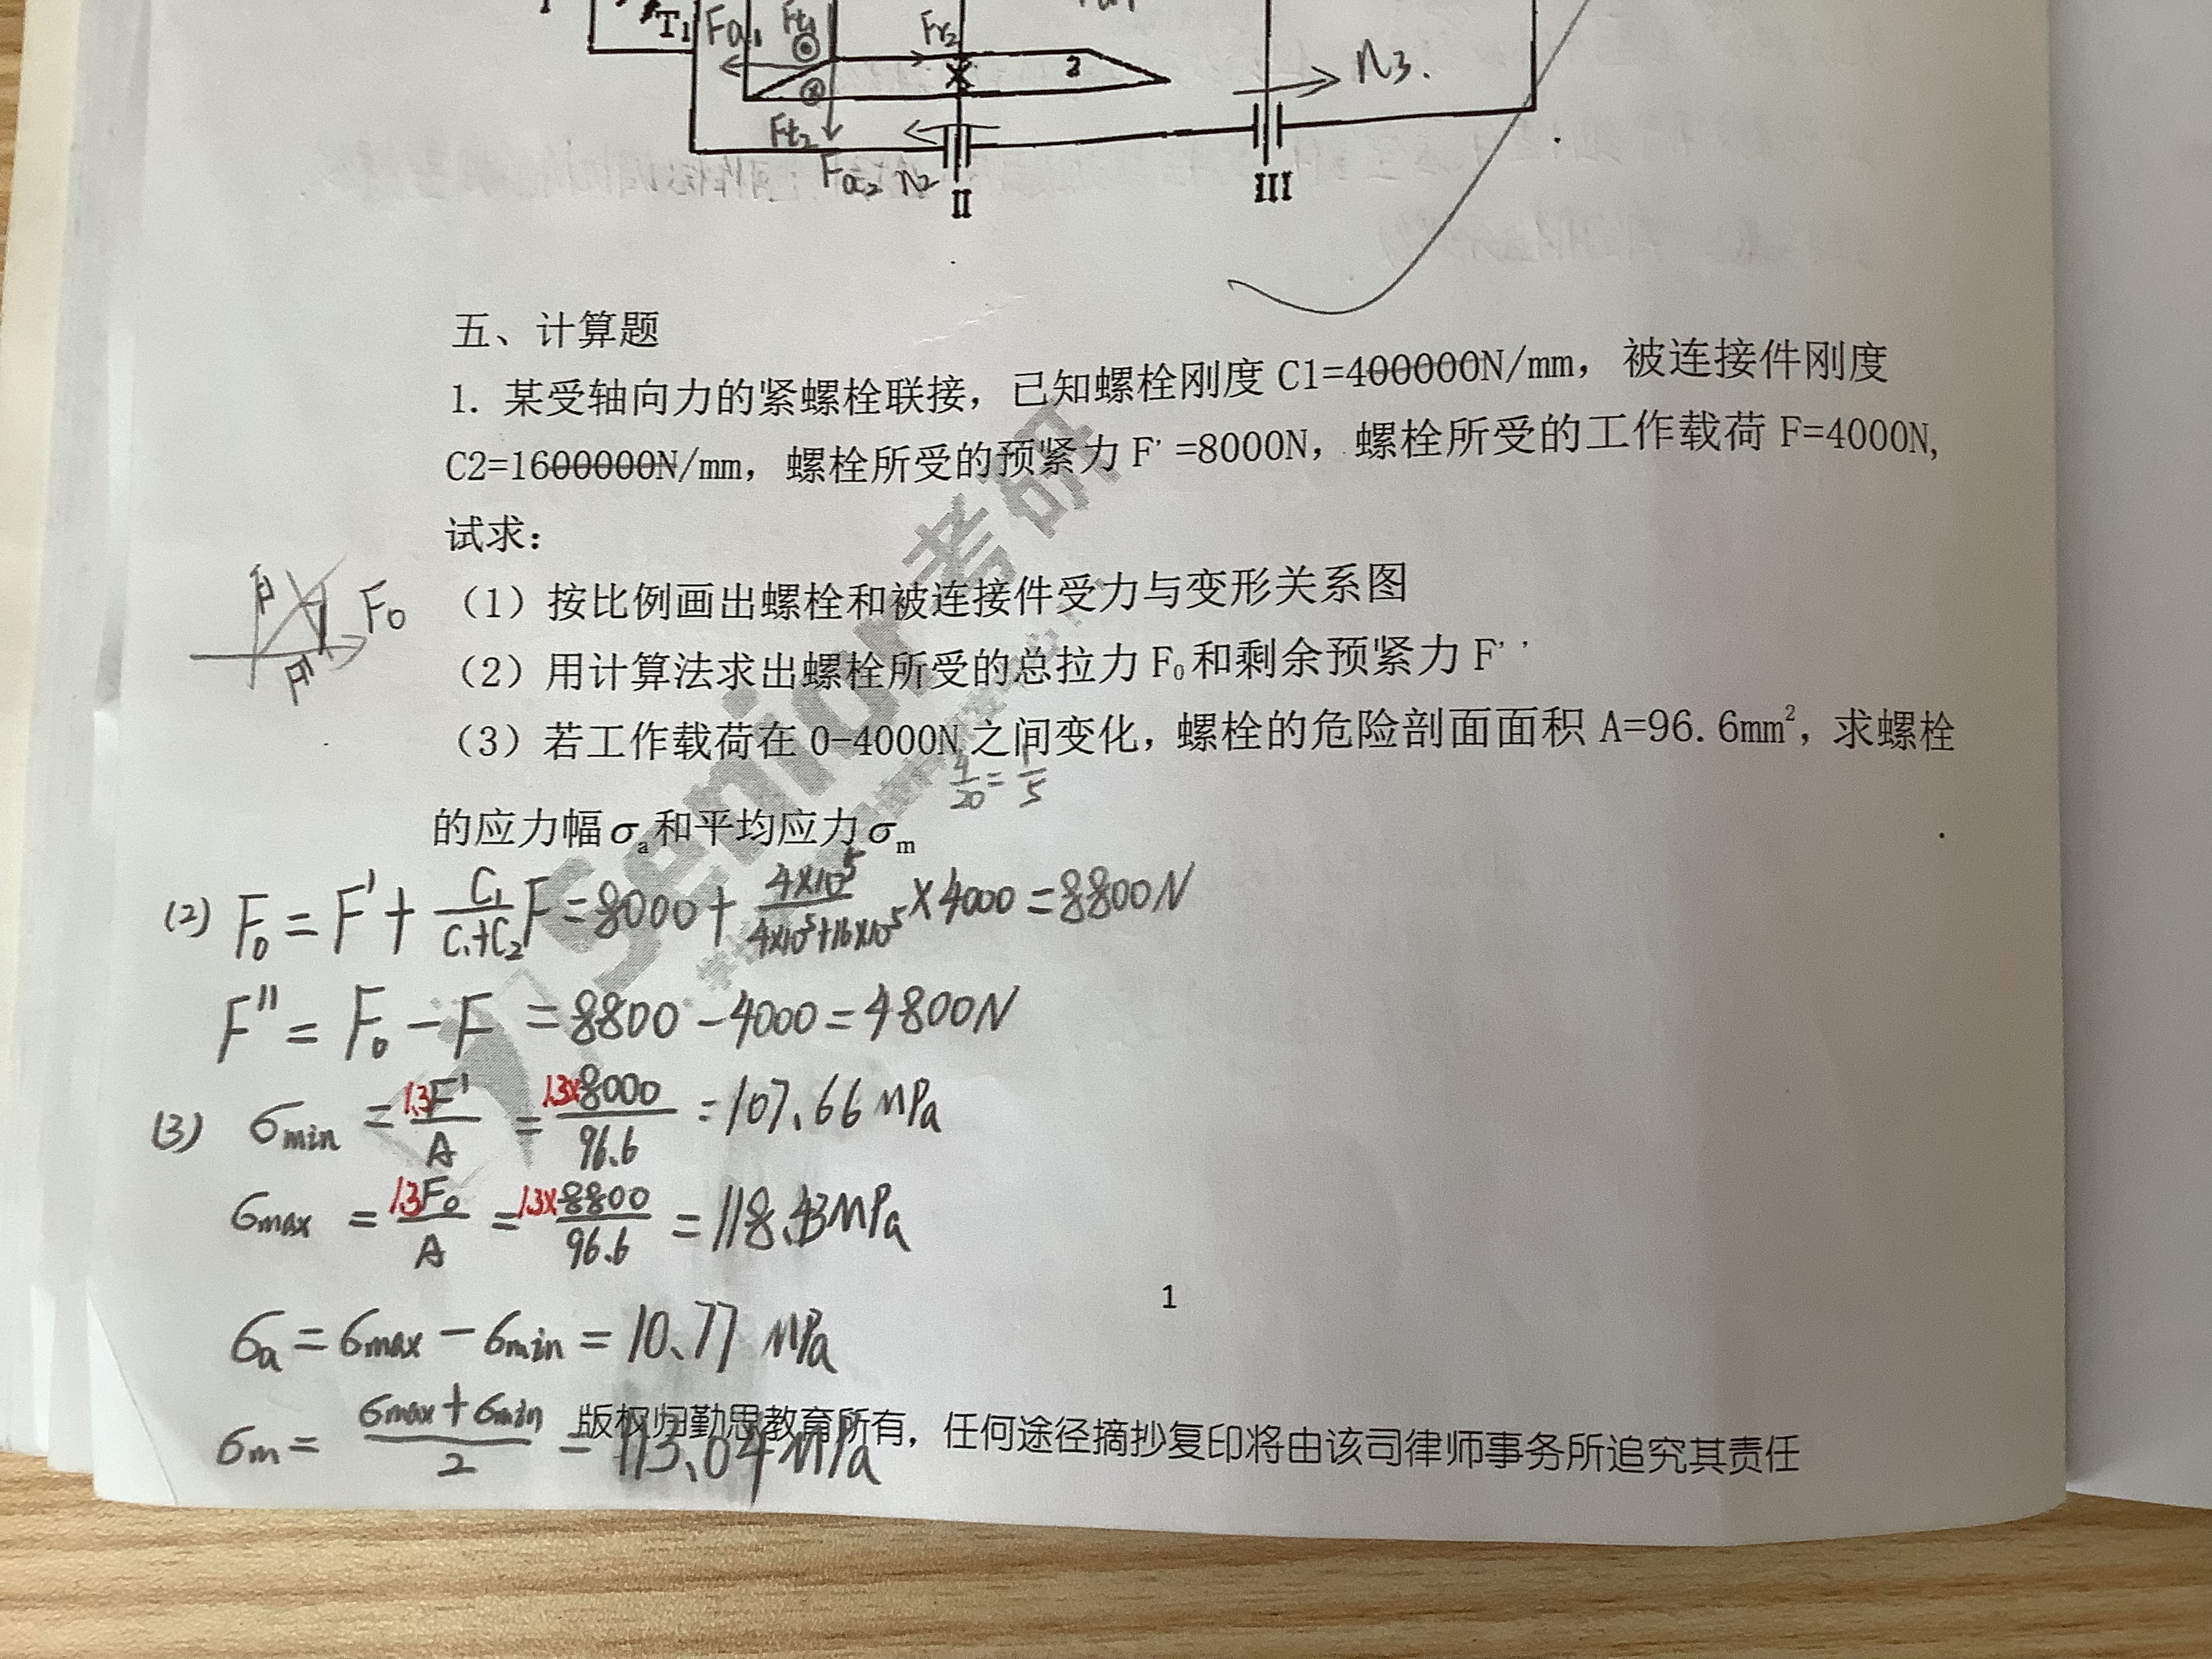 T1 Fa1 Ft1 Fr2 2 n3.
Ft2 Fa2 n2 II III
五、计算题
1. 某受轴向力的紧螺栓联接，已知螺栓刚度 C1=400000N/mm，被连接件刚度
C2=1600000N/mm，螺栓所受的预紧力 F' =8000N，螺栓所受的工作载荷 F=4000N,
试求：
F0
F'
（1）按比例画出螺栓和被连接件受力与变形关系图
（2）用计算法求出螺栓所受的总拉力 F₀和剩余预紧力 F' '
（3）若工作载荷在 0-4000N 之间变化，螺栓的危险剖面面积 A=96.6mm²，求螺栓
4/20 = 1/5
的应力幅σa和平均应力σm
Senior 考研
(2) F0 = F' + C1/(C1+C2) F = 8000 + 4×10^5/(4×10^5+16×10^5) × 4000 = 8800N
F'' = F0 - F = 8800 - 4000 = 4800N
(3) σmin = 1.3F'/A = 1.3×8000/96.6 = 107.66 MPa
σmax = 1.3F0/A = 1.3×8800/96.6 = 118.43MPa
1
σa = σmax - σmin = 10.77 MPa
σm = (σmax+σmin)/2 = 113.04MPa
版权归勤思教育所有，任何途径摘抄复印将由该司律师事务所追究其责任